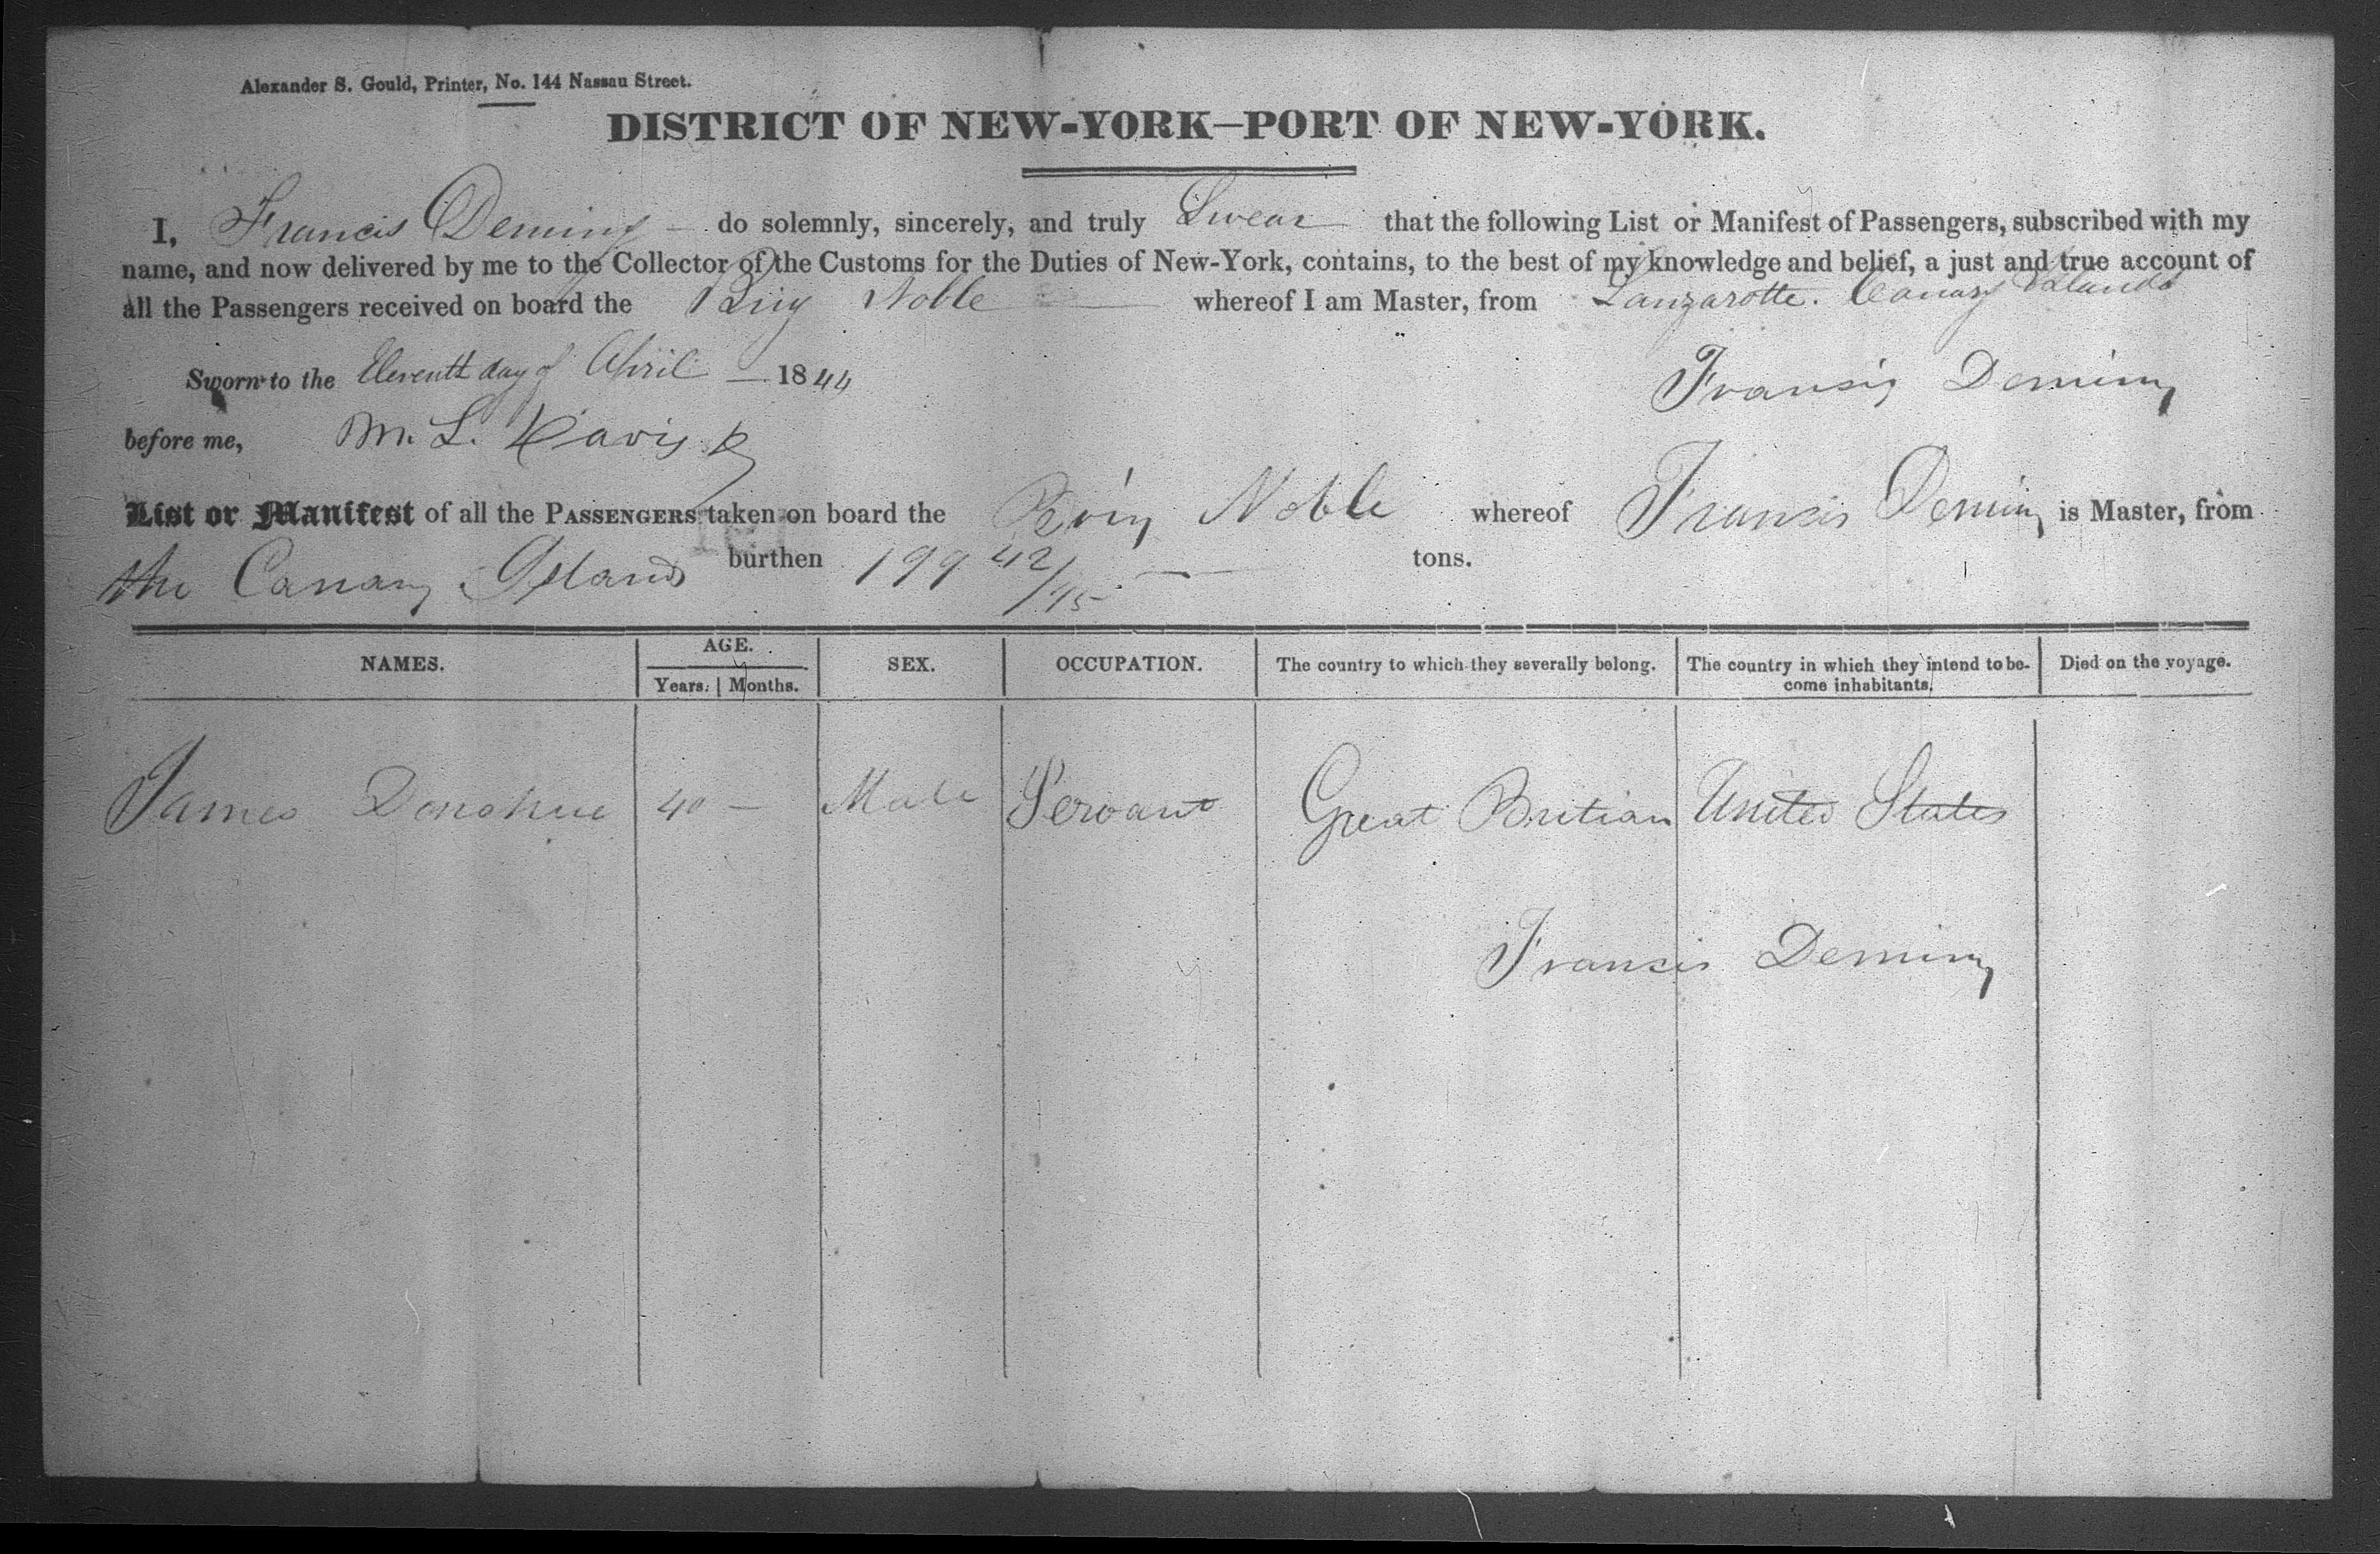 Alexander S. Gould, Printer, No. 144 Nassau Street.
DISTRICT OF NEW-YORK—PORT OF NEW-YORK.
I, Francis Deming do solemnly, sincerely, and truly Swear that the following List or Manifest of Passengers, subscribed with my
name, and now delivered by me to the Collector of the Customs for the Duties of New-York, contains, to the best of my knowledge and belief, a just and true account of
all the Passengers received on board the Brig Noble whereof I am Master, from Lanzarotte. Canary Islands
Sworn to the Eleventh day of April 1844 Francis Deming
before me, M. L. Davis
List or Manifest of all the PASSENGERS taken on board the Brig Noble whereof Francis Deming is Master, from
the Canary Islands burthen 199 42/95 tons.
NAMES. AGE. Years. Months. SEX. OCCUPATION. The country to which they severally belong. The country in which they intend to become inhabitants. Died on the voyage.
James Donohue 40 — Male Servant Great Britian United States
Francis Deming